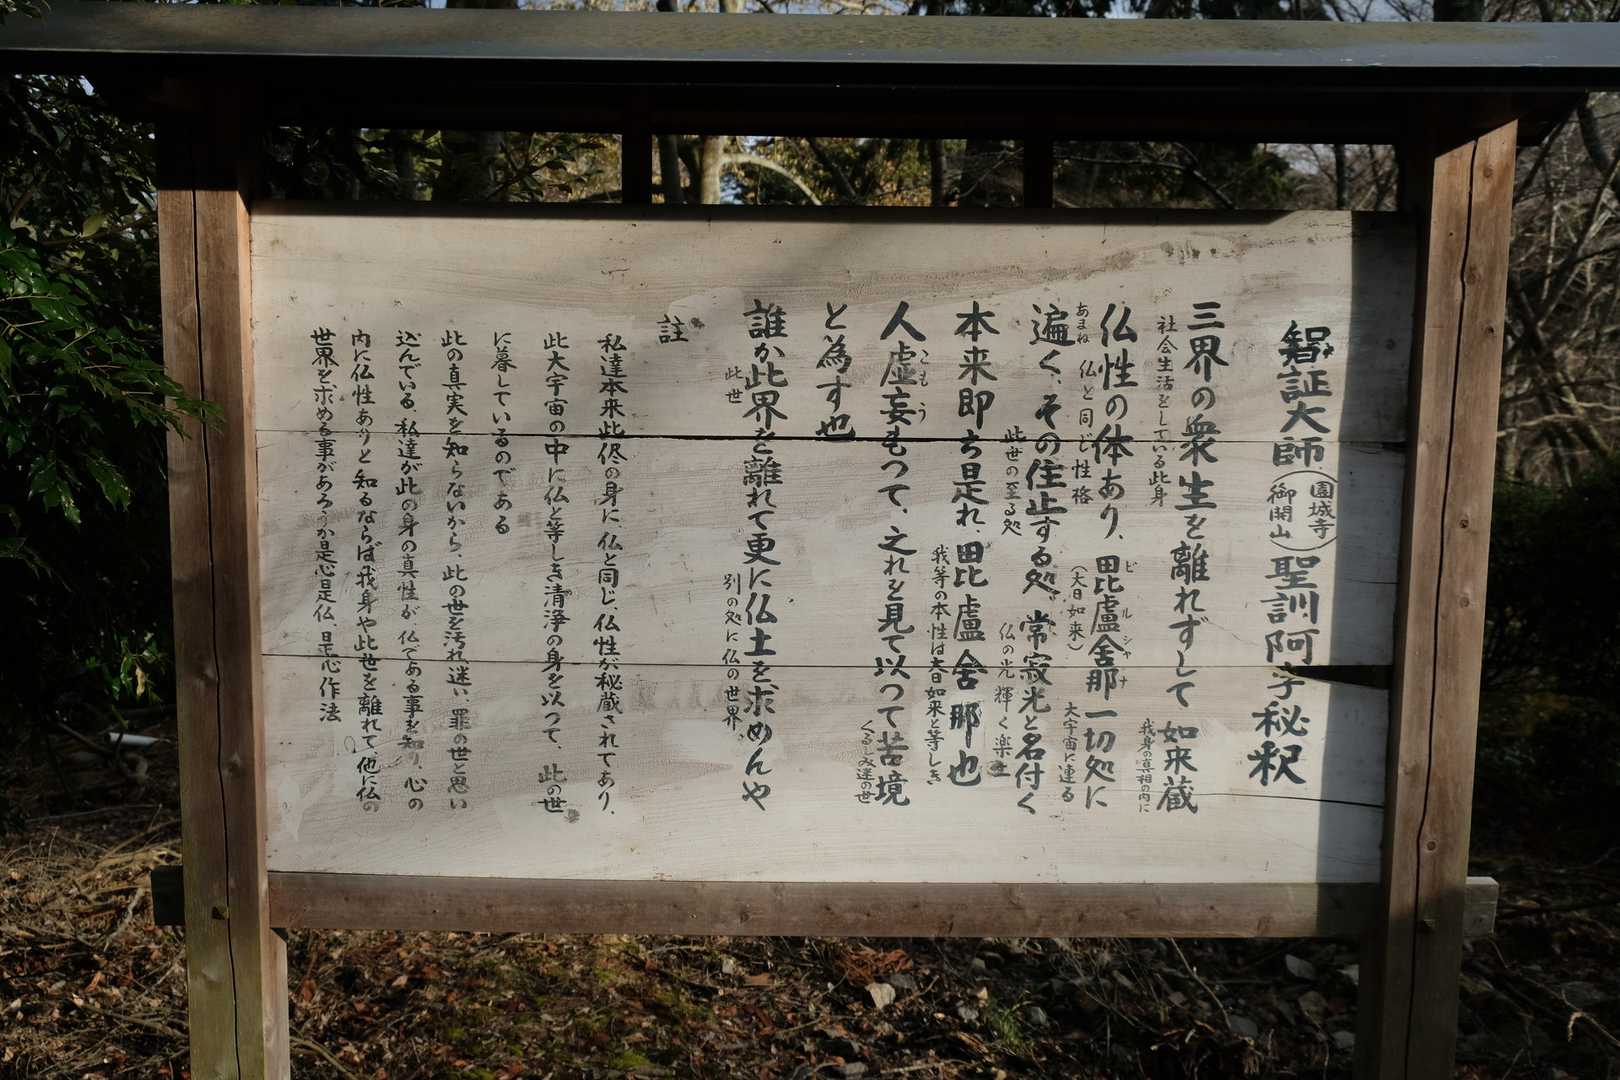 智証大師 園城寺御開山 聖訓阿字秘釈
三界の衆生を離れずして 如来蔵
社会生活をしている此身
我身の真相の内に
仏性の体あり、毘盧舎那一切処に
ビルシャナ
仏と同じ性格
(大日如来)
大宇宙に連る
遍く、その住止する処、常寂光と名付く
あまね
此世の至る処
仏の光輝く楽土
本来即ち是れ、毘盧舎那也
我等の本性は大日如来と等しき
人虚妄もつて、之れを見て以つて苦境
こもう
くるしみ迷の世
と為す也
誰か此界を離れて更に仏土を求めんや
此世
別の処に仏の世界
註
私達本来此侭の身に、仏と同じ、仏性が秘蔵されてあり、
此大宇宙の中に仏と等しき清浄の身を以つて、此の世
に暮しているのである
此の真実を知らないから、此の世を汚れ迷い、罪の世と思い
込んでいる、私達が此の身の真性が仏である事を知り、心の
内に仏性ありと知るならば我身や此世を離れて、他に仏の
世界を求める事があろうか是心是仏、是心作法